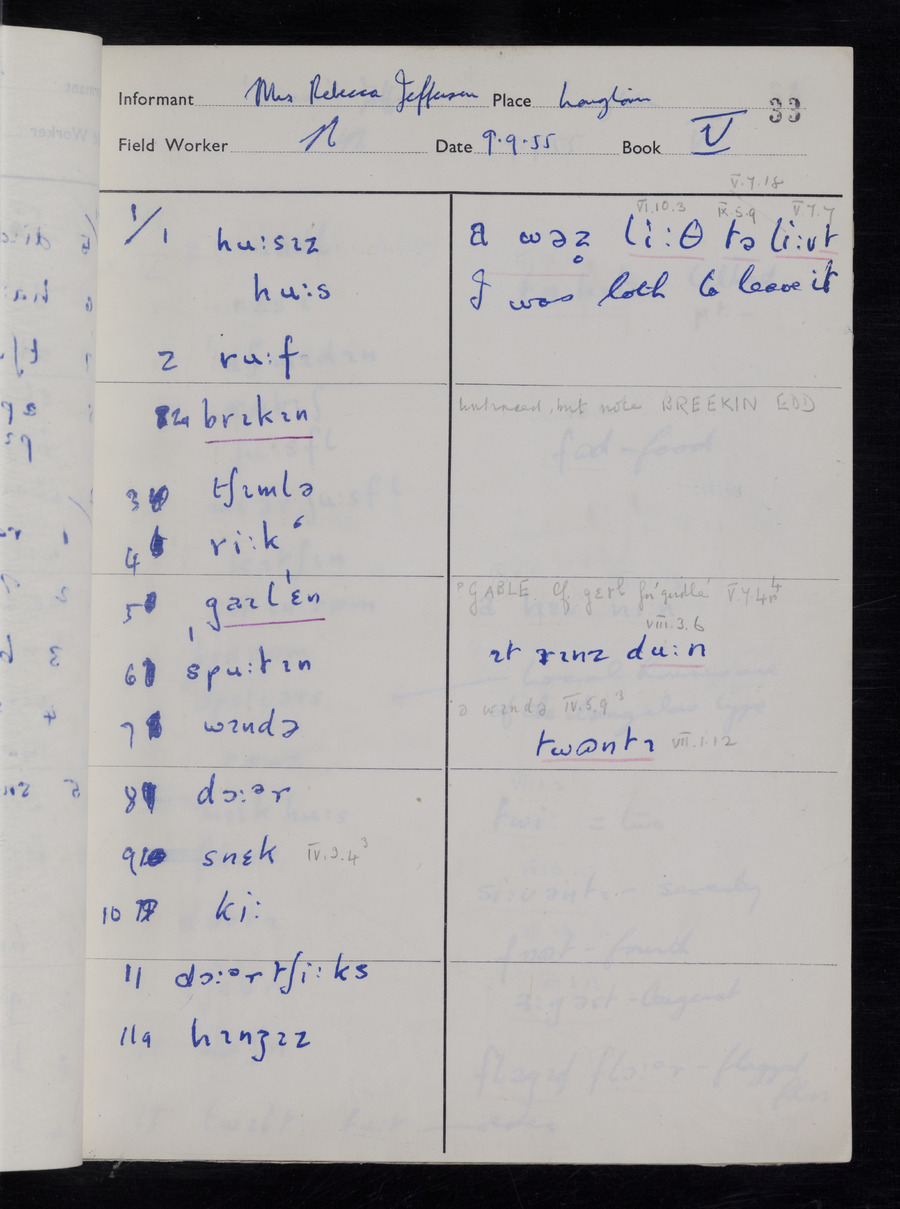 Informant Mrs Rebecca Jefferson Place Longtown 33
Field Worker N Date 9.9.55 Book V
V.7.18
VI.10.3 IX.5.9 V.7.7
1/1 hu:sɪz
a wəz̥ li:θ tə li:vt
hu:s
I was loth to leave it
2 ru:f
2a brɪkɪn
untraced, but note BREEKIN EDD
3 tʃɪmlə
4 ri:kʻ
5 ˌgaɪlˈɛn
?GABLE Cf gɛɾl for 'girdle' V.7.4
VIII.3.6
6 spu:tɪn
ɪt rɪnz du:n
ə wɪndə IV.5.9³
7 wɪndə
twantɪ VII.1.12
8 dɔ:ər
9 snɛk IV.3.4³
10 ki:
11 dɔ:ərtʃi:ks
11a hɪnʒɪz